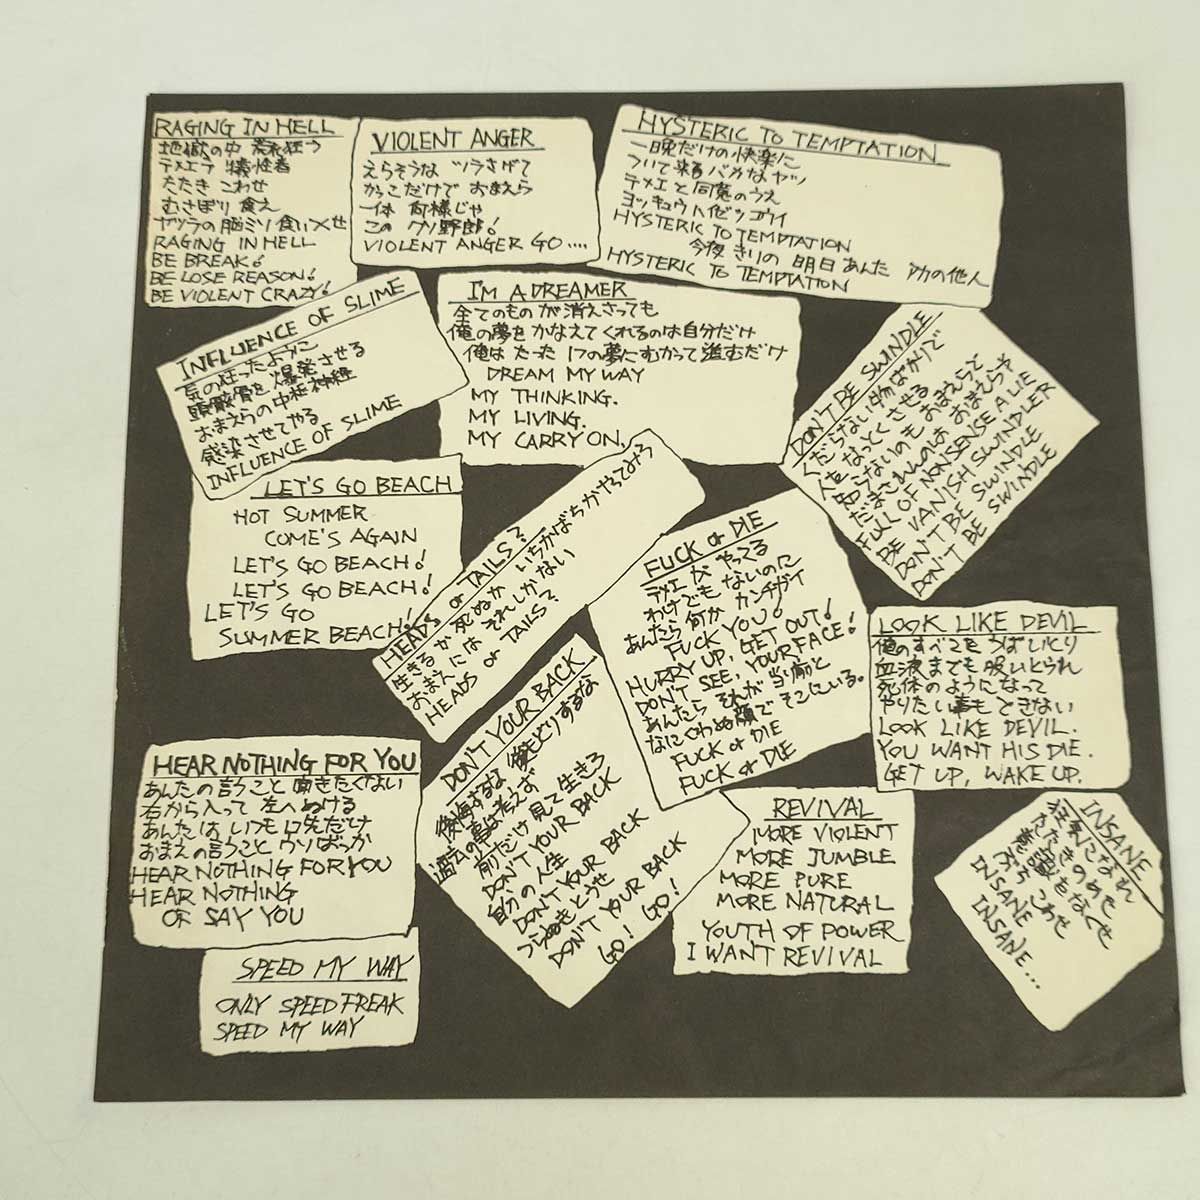 RAGING IN HELL
地獄の中 荒れ狂う
テメエラ 犠牲者
たたき こわせ
むさぼり 食え
ヤツラの脳ミソ 食い
RAGING IN HELL
BE BREAK!
BE LOSE REASON!
BE VIOLENT CRAZY!
VIOLENT ANGER
えらそうな ツラさげて
かっこだけで おまえら
一体 何様じゃ
この クソ野郎!
VIOLENT ANGER GO....
HYSTERIC TO TEMPTATION
一晩だけの快楽に
ついて来るバカなヤツ
テメエと同魔のうえ
HYSTERIC TO TEMPTATION
今夜 きりの 明日 あんた 赤の他人
HYSTERIC TO TEMPTATION
INFLUENCE OF SLIME
気の狂ったように
頭骸骨を 爆発させる
おまえらの中枢神経
感染させてやる
INFLUENCE OF SLIME
I'M A DREAMER
全てのものが消えさっても
俺の夢をかなえてくれるのは自分だけ
俺は たった 1つの夢にむかって進むだけ
DREAM MY WAY
MY THINKING.
MY LIVING.
MY CARRY ON.
DON'T BE SWINDLE
くだらない物ばかりで
人をなっとくさせる
足んないのもおまえらと
だまされんのは おまえらや
FULL OF NONSENSE A LIE
BE VANISH SWINDLER
DON'T BE SWINDLE
DON'T BE SWINDLE
LET'S GO BEACH
HOT SUMMER
COME'S AGAIN
LET'S GO BEACH!
LET'S GO BEACH!
LET'S GO
SUMMER BEACH!
HEADS or TAILS?
生きるか 死ぬか いちかばちかやってみろ
おまえには それしかない
HEADS or TAILS?
FUCK or DIE
テメエが やってる
わけでも ないのに
あんたら 何か カンチガイ
FUCK YOU!
HURRY UP, GET OUT!
DON'T SEE, YOUR FACE!
あんたら それが 当り前と
なにくわぬ顔で そこにいる。
FUCK or DIE
FUCK or DIE
LOOK LIKE DEVIL
俺のすべてを うばいとり
血液までも 吸いとられ
死体のようになって
やりたい事も できない
LOOK LIKE DEVIL.
YOU WANT HIS DIE.
GET UP, WAKE UP.
HEAR NOTHING FOR YOU
あんたの言うこと 聞きたくない
右から入って 左へぬける
あんたは いつも 口先だけ
おまえの言うこと ウソばっか
HEAR NOTHING FOR YOU
HEAR NOTHING
OF SAY YOU
DON'T YOUR BACK
後悔するな 後もどりするな
過去の事は考えず
前だけ見て生きろ
DON'T YOUR BACK
自分の人生
DON'T YOUR BACK
つらぬきとうせ
DON'T YOUR BACK
GO! GO!
REVIVAL
MORE VIOLENT
MORE JUMBLE
MORE PURE
MORE NATURAL
YOUTH OF POWER
I WANT REVIVAL
INSANE
狂気になれ
たたきのめせ
意識をなくせ
こわせ
INSANE
INSANE...
SPEED MY WAY
ONLY SPEED FREAK
SPEED MY WAY